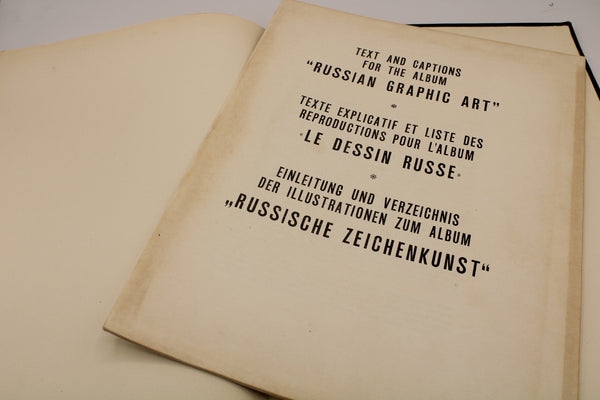 TEXT AND CAPTIONS
FOR THE ALBUM
"RUSSIAN GRAPHIC ART"
*
TEXTE EXPLICATIF ET LISTE DES
REPRODUCTIONS POUR L'ALBUM
"LE DESSIN RUSSE"
*
EINLEITUNG UND VERZEICHNIS
DER ILLUSTRATIONEN ZUM ALBUM
„RUSSISCHE ZEICHENKUNST“